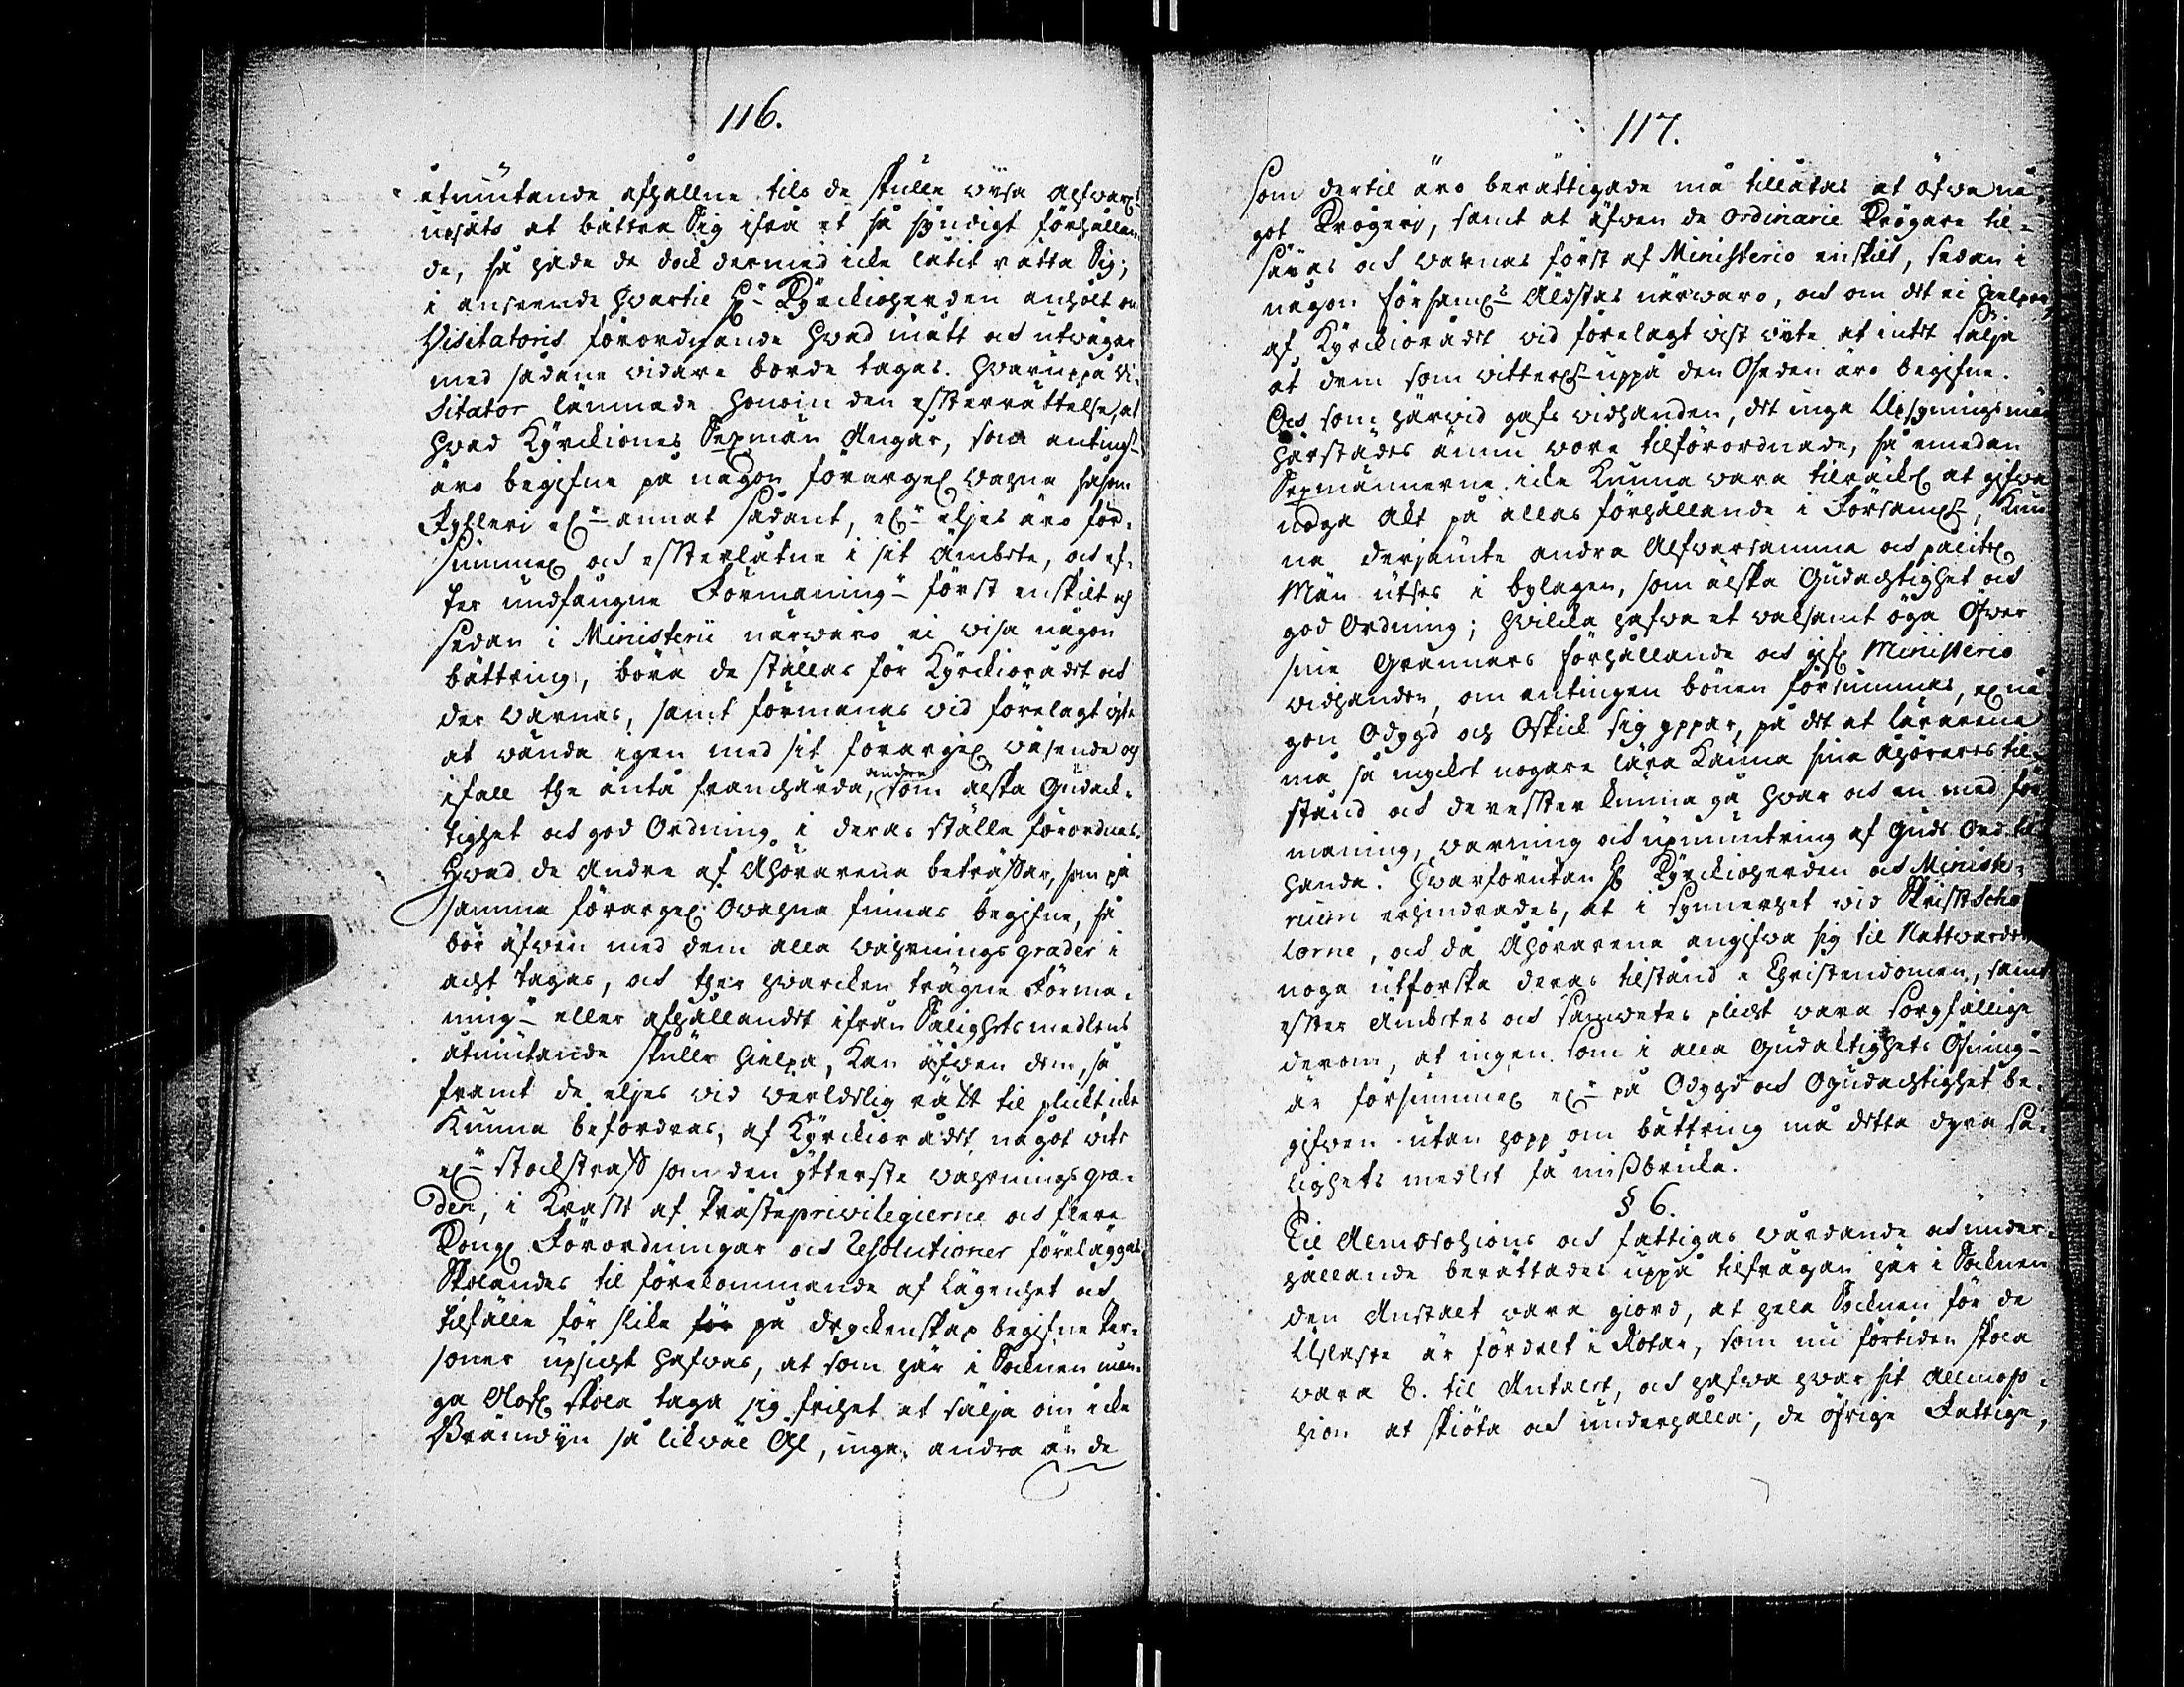 116.
åtniutande afhållne tils de skulle wisa alfwars
upsåts at bättra Sig ifrå et så syndigt förhållan-
de, så hade de dock dermed icke låtit rätta Sig;
i anseende hvartil Hr Kyrckioherden anhölt om
Visitatoris förordnande hwad mått och utwägar
med sådane vidare borde tagas. Hvaruppå Vi-
sitator lämnade honom den effterrättelse, at
hwad Kyrckiones Sexmän Angår, som antingn
äro begifne på någon förargel wahna såsom
Fylleri elr annat sådant, elr eljes äro för-
summel och effterlåtne i sit Ämbete, och ef-
ter undfångne Förmaning först enskilt och
sedan i Ministerii närwaro ei wisa någon
bättring, böra de ställas för Kyrckiorådet och
der warnas, samt förmanas vid förelagt wite
at wända igen med sit förargel wäsende och
ifall the äntå framhärda, andre som älska Gudack-
tighet och god Ordning i deras ställe förordnas.
Hwad de Andre af Åhörarena beträffar, som på
samma förargel Owahna finnas begifne, så
bör äfwen med dem alla wahrnings grader i
acht tagas, och ther hwarcken trägne Förma-
ning eller afhållandet ifrån Salighets medlens
åtniutande skulle hielpa, kan äfwen dem, så
framt de eljes vid werldslig rätt til plickt icke
kunna befordras, af Kyrckiorådet något wite
elr stockstraff som den ytterste wahrnings gra-
den, i krafft af Prästeprivilegierne och flere
Kongl Förordningar och Resolutioner föreläggas
Skolandes til förekommande af lägenhet och
tilfälle för slike för på dryckenskap begifne Per-
soner upsicht hafwas, at som här i Socknen mån-
ga skola taga sig frihet at sälja om icke
Bränwijn så likwäl Öhl, inga andra än de
117.
som dertil äro berättigade må tillåtas at öfwa nå-
got Krögeri, samt at äfwen de ordinarie Krögare til-
säjas och warnas först af Ministerio enskilt, sedan i
någon församls Äldstas närwaro, och om det ei hielper,
af Kyrckiorådet vid förelagt wist wite at intet sälja
åt dem som witterl uppå den Oseden äro begifne.
Och som härvid gafs widhanden, det inga Upsynings män
härstädes ännu wore tilförordnade, så emedan
Sexmännerne icke kunna wara tilräckl at gifwa
noga Akt på allas förhållande i Församl, kun-
na derjämte andra Alfwarsamma och pålitel
Män utses i bylagen, som älska Gudachtighet och
god Ordning; hvilcka hafwa et waksamt öga Öfwer
sine Grannars förhållande och gifw Ministerio
vidhanden, om antingen bönen försummas, el nå-
gon Odygd och Oskick sig yppar, på det at lärarena
må så mycket nogare lära känna sine Åhörares til-
stånd och dereffter kunna gå hwar och en med för-
maning, warning och upmuntring af Guds Ord til
handa. Hvarförutan Hr Kyrckioherden och Ministe-
rium erhindrades, at i synnerhet wid Skrifft scho-
lorne, och då Åhörarena angifwa sig til Nattvarden
noga utforska deras tilstånd i Christendomen, samt
effter Ämbetes och samwetes plicht wara sorgfällige
derom, at ingen som i alla Gudaktighets Öfning
är försummel elr på Odygd och Ogudachtighet be-
gifwen utan hopp om bättring må detta dyra Sa-
lighets medlet få missbruka.
§ 6.
Til Almosohions och fattigas wårdande och under-
hållande berättades uppå tilfrågan här i Socknen
den Anstalt wara giord, at hela Socknen för de
Uslaste är fördelt i Rotar, som nu förtiden skola
wara 8. til Antalet, och hafwa hwar sit Almoso-
hion at skiöta och underhålla; de öfrige Fattige,